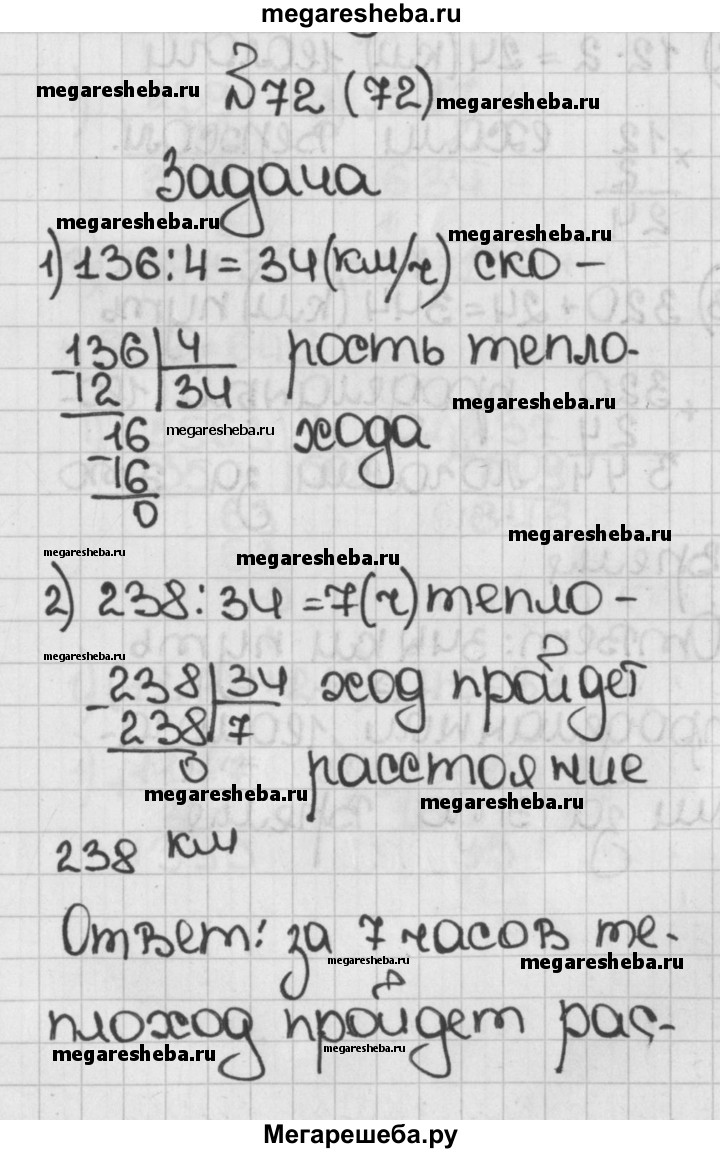 megaresheba.ru
megaresheba.ru №72 (72) megaresheba.ru
Задача
megaresheba.ru megaresheba.ru
1) 136:4 = 34 (км/ч) ско-
136 4 рость тепло-
-12 34 megaresheba.ru
16 megaresheba.ru хода
-16
0
megaresheba.ru
megaresheba.ru megaresheba.ru
2) 238:34 =7(ч) тепло-
megaresheba.ru
-238 34 ход пройдет
238 7
0 расстояние
megaresheba.ru megaresheba.ru
238 км
Ответ: за 7 часов те-
megaresheba.ru megaresheba.ru
плоход пройдет рас-
megaresheba.ru megaresheba.ru
Мегарешеба.ру